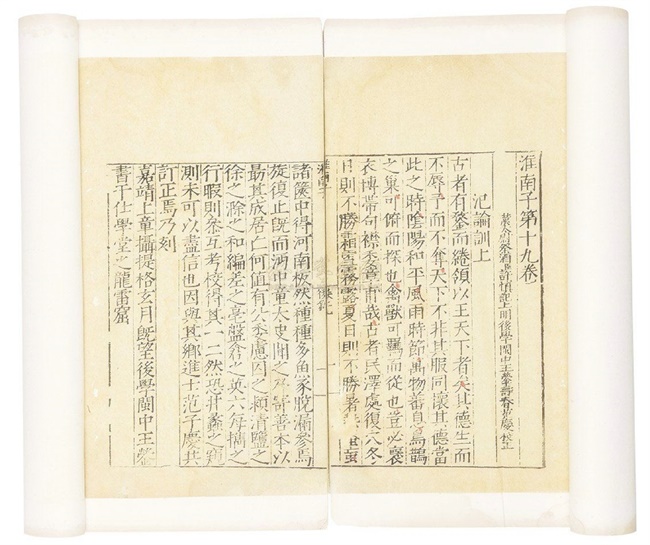 淮南子第十九卷
祭酒許慎記上明後學閩中王鎣壽春范慶校正
氾論訓上
古者有鍪而綣領以王天下者矣其德生而
不辱予而不奪天下不非其服同懷其德當
此之時陰陽和平風雨時節萬物蕃息烏鵲
之巢可俯而探也禽獸可羈而從也豈必褒
衣博帶句襟委章甫哉古者民澤處復穴冬
日則不勝霜雪霧露夏日則不勝暑
諸篋中得河南板然種種多魚豕脫漏參焉
旋復止旣而沔中童太史聞之乃寄善本以
勗其成居亡何值有公委慮囚之頼清鹽之
徐之滁之和編差之亳盤倉之英六每攜之
行暇則叅互考校得其一二然恐井蠡之窺
測未可以盡信也因與其鄉進士范子慶共
訂正焉乃刻
嘉靖上章攝提格玄月旣望後學閩中王鎣
書于仕學堂之龍雷窟